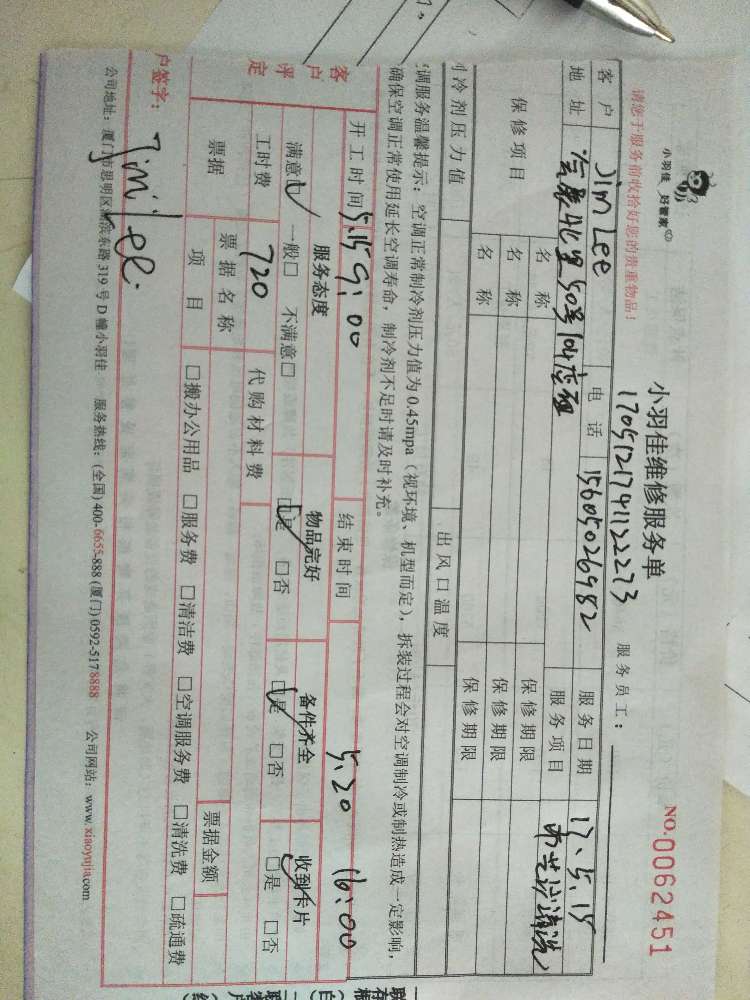 小羽佳 好管家
小羽佳维修服务单
NO.0062451
请您于服务前收拾好您的贵重物品!
1705121791122273
服务员工:
客户 Jim Lee 电话 15605026982 服务日期 17.5.15
地址 50号 服务项目 布艺沙发清洗
保修项目 名称 保修期限
名称 保修期限
名称 保修期限
制冷剂压力值 出风口温度
空调服务温馨提示:空调正常制冷剂压力值为 0.45mpa(视环境、机型而定),拆装过程会对空调制冷或制热造成一定影响,
确保空调正常使用延长空调寿命,制冷剂不足时请及时补充。
开工时间 5.15 9:00 结束时间 5.20 16:00
客户评定 服务态度 物品完好 备件齐全 收到卡片
满意☑ 一般□ 不满意□ ☑是 □否 ☑是 □否 □是 □否
工时费 720 代购材料费
票据 票据名称 票据金额
项目 □搬办公用品 □服务费 □清洁费 □空调服务费 □清洗费 □疏通费
户签字: Jimi Lee.
公司地址:厦门市思明区湖滨东路 319 号 D 幢小羽佳 服务热线:(全国) 400-6655-888 (厦门) 0592-5178888 公司网站:www.xiaoyujia.com